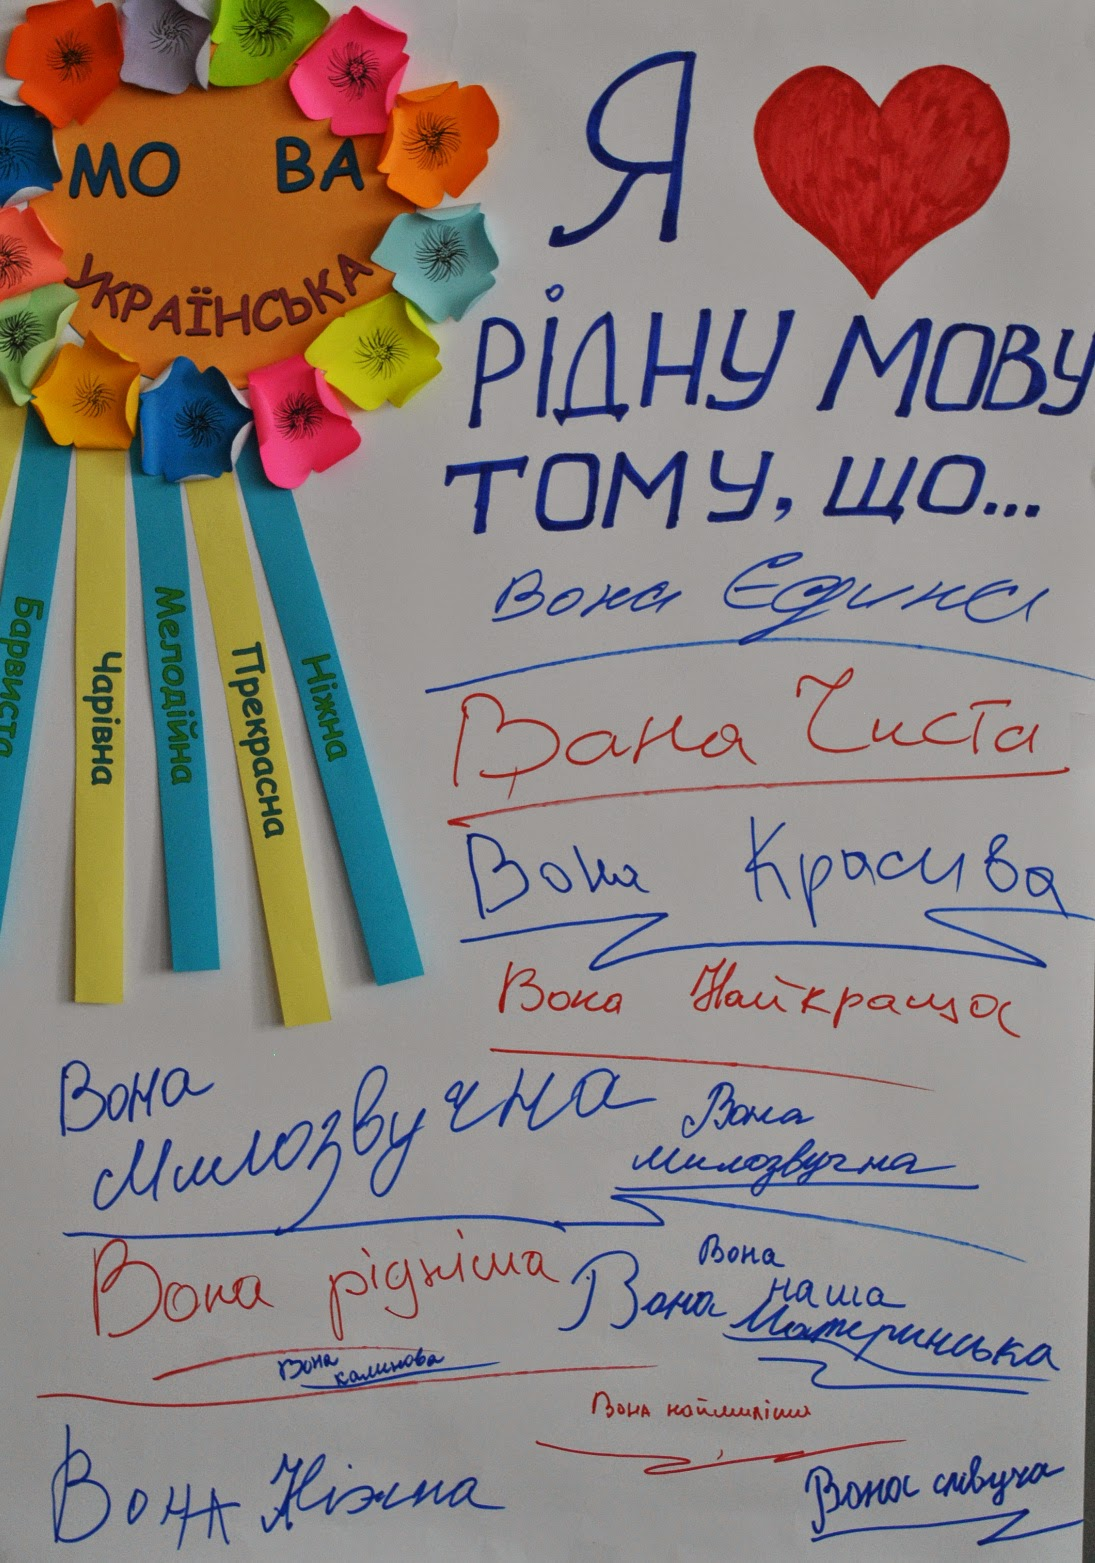 МО ВА
УКРАЇНСЬКА
Барвиста
Чарівна
Мелодійна
Прекрасна
Ніжна
Я
РІДНУ МОВУ
ТОМУ, ЩО...
Вона Єдина
Вона Чиста
Вона Красива
Вона Найкраща
Вона
Милозвучна
Вона
милозвучна
Вона рідніша
Вона
наша
Вона Материнська
Вона
калинова
Вона наймиліша
Вона Ніжна
Вона співуча